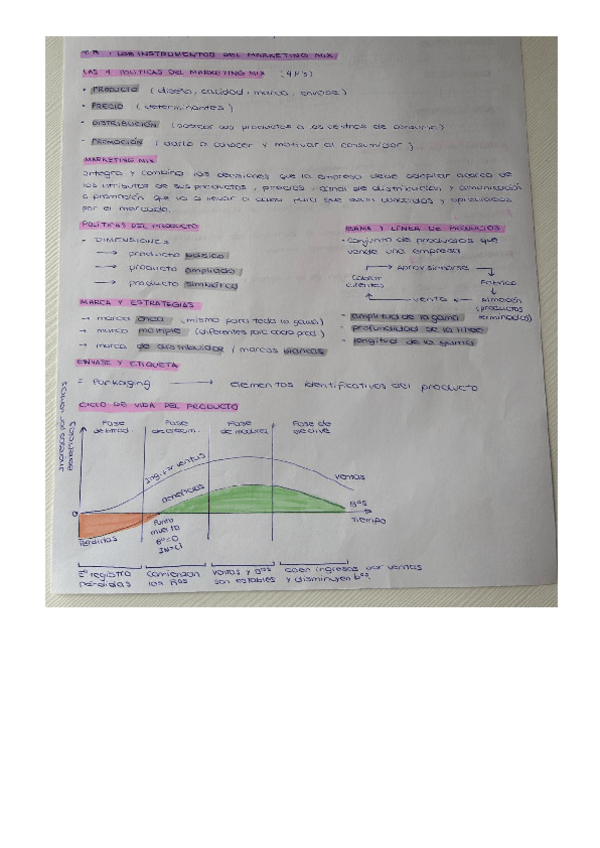 T.8 : LOS INSTRUMENTOS DEL MARKETING MIX
LAS 4 POLITICAS DEL MARKETING MIX (4 P's)
• PRODUCTO (diseño, calidad, marca, envase)
• PRECIO (determinantes)
• DISTRIBUCIÓN (acercar sus productos a los centros de consumo)
• PROMOCIÓN (darlo a conocer y motivar al consumidor)
MARKETING MIX
Integra y combina las decisiones que la empresa debe adoptar acerca de
los atributos de sus productos, precios, canal de distribución y comunicación
o promoción que va a llevar a cabo para que sean conocidos y apreciados
por el mercado.
POLÍTICAS DEL PRODUCTO
- DIMENSIONES
→ producto básico
→ producto ampliado
→ producto simbólico
MARCA Y ESTRATEGIAS
→ marca única (mismo para toda la gama)
→ marca múltiple (diferentes para cada prod.)
→ marca de distribuidor / marcas blancas
GAMA Y LÍNEA DE PRODUCTOS
• Conjunto de productos que
vende una empresa
Aprovisionarse
Cobrar
clientes
Fabrica
venta
almacén
(productos
terminados)
• amplitud de la gama
• profundidad de la línea
• longitud de la gama
ENVASE Y ETIQUETA
= Packaging → elementos identificativos del producto
CICLO DE VIDA DEL PRODUCTO
Ingresos por ventas
Beneficios
Fase
de introd.
Fase
de crecim.
Fase
de madurez
Fase de
declive
Ing. por ventas
ventas
Beneficios
Bºs
Tiempo
0
Pérdidas
Punto
muerto
Bº=0
IN=CT
Eª registra
pérdidas
Comienzan
los Bºs
Ventas y Bºs
son estables
caen ingresos por ventas
y disminuyen bºs